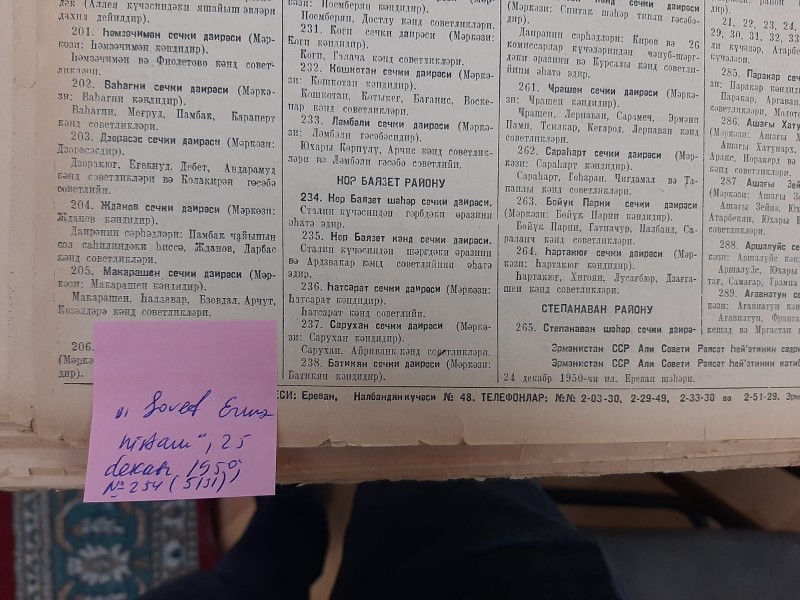 дәк (Аллеја күчәсиндәки јашајыш евләри
дахил дејилдир).
201. Һәмзәчимән сечки даирәси (Мәр-
кәзи: Һәмзәчимән кәндидир).
Һәмзәчимән вә Фиолетово кәнд совет-
ликләри.
202. Ваһагни сечки даирәси (Мәркә-
зи: Ваһагни кәндидир).
Ваһагни, Мегруд, Памбак, Караперт
кәнд советликләри.
203. Дзорақес сечки даирәси (Мәркәзи:
Дзорақесдир).
Дзоракјух, Егекнуд, Дебет, Андарамуд
кәнд советликләри вә Колакирән гәсәбә
советлијн.
204. Жданов сечки даирәси (Мәркәзи:
Жданов кәндидир).
Даирәнин сәрһәдләри: Памбак чајынын
сол саһилиндәки һиссә, Жданов, Дарбас
кәнд советликләри.
205. Макарашен сечки даирәси (Мәр-
кәзи: Макарашен кәндидир).
Макарашен, Һаллавар, Езовдал, Арчут,
кәнд советликләри.
206.
(Мәркә
дир).
Нојемберјан кәндидир).
Нојемберјан, Достлу кәнд советликләри.
231. Коги сечки даирәси (Мәркәзи:
Коги кәндидир).
Коги, Галача кәнд советликләри.
232. Кошкотан сечки даирәси (Мәркә-
зи: Кошкотан кәндидир).
Кошкотан, Котыкег, Баганис, Воске-
пар кәнд советликләри.
233. Ләмбәли сечки даирәси (Мәркә-
зи: Ләмбәли гәсәбәсидир).
Јухары Көрпүлү, Арчис кәнд советлик-
ләри вә Ләмбәли гәсәбә советлији.
НОР БАЈАЗЕТ РАЈОНУ
234. Нор Бајазет шәһәр сечки даирәси.
Сталин күчәсиндән гәрбдәки әразини
әһатә едир.
235. Нор Бајазет кәнд сечки даирәси.
Сталин күчәсиндән шәргдәки әразини
вә Ардзвакар кәнд советлијини әһатә
едир.
236. Һатсарат сечки даирәси (Мәркә-
зи: Һатсарат кәндидир).
Һатсарат кәнд советлији.
237. Сарухан сечки даирәси (Мәркә-
зи: Сарухан кәндидир).
Сарухан, Ајриванк кәнд советликләри.
238. Батикјан сечки даирәси (Мәркәзи:
Батикјан кәндидир).
кәнд сечки даирәси
(Мәркәзи: Спитак шәһәр типли гәсәбә-
дир).
Даирәнин сәрһәдләри: Киров вә 26
комиссарлар күчәләриндән чәнуб-шәрг-
дәки әрази вә Курсалы кәнд советли-
јини әһатә едир.
261. Чрашен сечки даирәси (Мәркә-
зи: Чрашен кәндидир).
Чрашен, Лернаван, Сарамеч, Эрмәни
Памп, Тсилкар, Кегарод, Лернаван кәнд
советликләри.
262. Сараһарт сечки даирәси (Мәр-
кәзи: Сараһарт кәндидир).
Сараһарт, Гоһаран, Чигдамал вә Ҭа-
панлы кәнд советликләри.
263. Бөјүк Парни сечки даирәси
(Мәркәзи: Бөјүк Парни кәндидир).
Бөјүк Парни, Гатначур, Налбанд, Са-
раланч кәнд советликләри.
264. Һартакјуғ сечки даирәси (Мәр-
кәзи: Һартакјуғ кәндидир).
Һартакјуғ, Хнгојан, Лусағбјур, Дзағаш-
шен кәнд советликләри.
СТЕПАНАВАН РАЈОНУ
265. Степанаван шәһәр сечки даирә-
21, 22, 23, 24,
29, 30, 31, 32, 33
ли күчәләр, Атарбе
күчәләри.
285. Паракар сечки
зи: Паракар кәндидир
Паракар, Аргаван
советликләри, Молот
286. Ашағы Хатун
зи: Ашағы Х
Ашағы Хатунарх,
Аракс, Норакерт вә
кәнд советликләри.
287 Ашағы Зей
(Мәркәзи: Ашағы З
Ашағы Зејвә, Јух
Атарбекјан, Јухары К
советликләри.
288. Аршалујс се
кәзи: Аршалујс кәнд
Аршалујс, Јухары
тағ, Самағар, Грампа
289. Ағавнатун се
кәзи: Ағавнатун
Ағавнатун, Франга
кешад вә Мргастан п
Эрмәнистан ССР Али Совети Рәјасәт Һеј'әтинин сәдри
Эрмәнистан ССР Али Совети Рәјасәт Һеј'әтинин катиб
24 декабр 1950-чи ил. Ереван шәһәри.
ЕСИ: Ереван, Налбандјан күчәси № 48. ТЕЛЕФОНЛАР: №№ 2-03-30, 2-29-49, 2-33-30 вә 2-51-29. Эрм
"Sovet Ermə
nistanı", 25
dekabr, 1950,
№ 254 (5151)